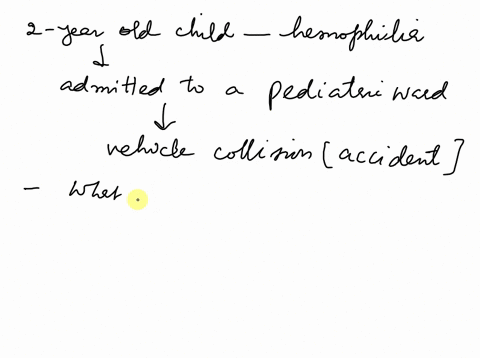 2-year old child — hemophilia
↓
admitted to a pediateri ward
↓
vehocle collision [accident]
- Whet